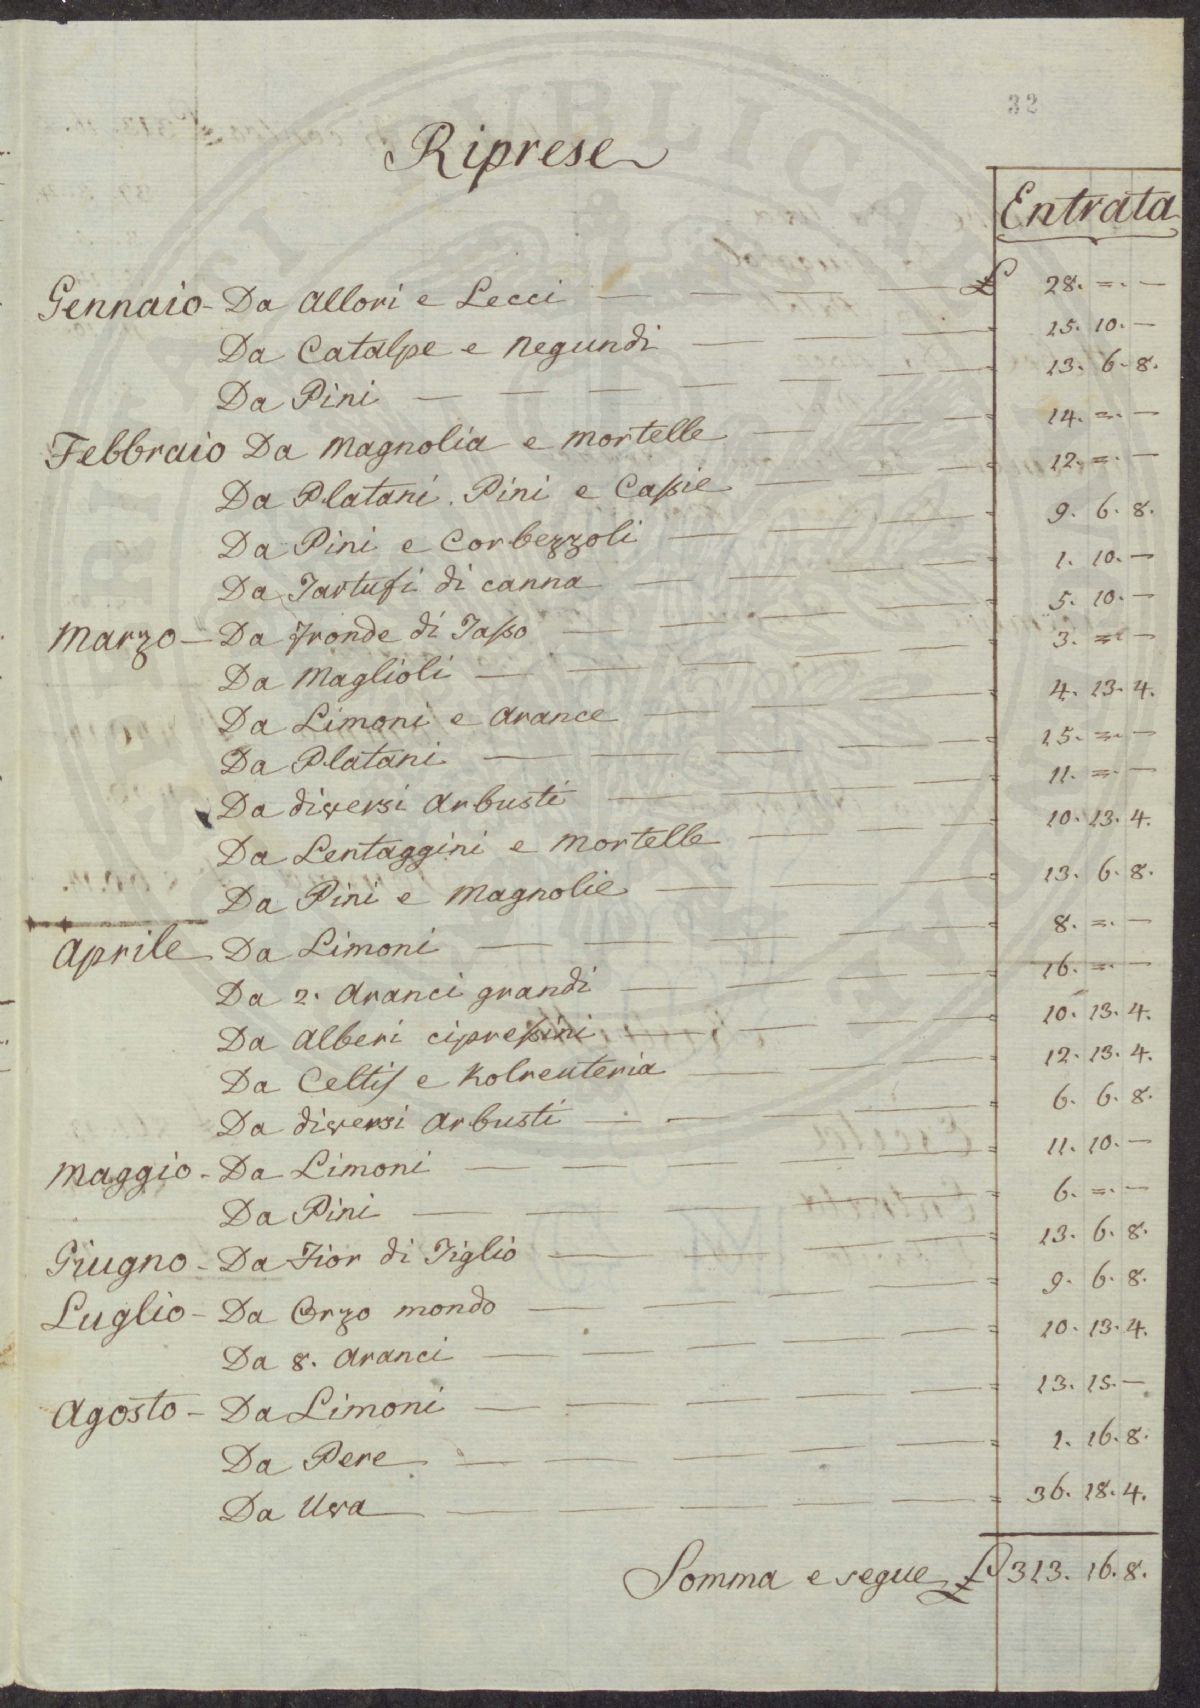 32
Riprese
Entrata
Gennaio - Da Allori e Lecci — — — — £ 28. =. —
Da Catalpe e Negundi — — — — = 15. 10. —
Da Pini — — — — — — = 13. 6. 8.
Febbraio Da Magnolia e Mortelle — — — = 14. =. —
Da Platani. Pini e Caſsie — — — = 12. =. —
Da Pini e Corbezzoli — — — — = 9. 6. 8.
Da Tartufi di canna — — — — = 1. 10. —
Marzo — Da Fronde di Taſso — — — — = 5. 10. —
Da Maglioli — — — — — = 3. =. —
Da Limoni e Arance — — — — = 4. 13. 4.
Da Platani — — — — — = 15. =. —
Da diversi Arbusti — — — — = 11. =. —
Da Lentaggini e Mortelle — — — = 10. 13. 4.
Da Pini e Magnolie — — — — = 13. 6. 8.
Aprile Da Limoni — — — — — = 8. =. —
Da 2. Aranci grandi — — — — = 16. =. —
Da Alberi cipreſsini — — — — = 10. 13. 4.
Da Celtis e Kolreuteria — — — — = 12. 13. 4.
Da diversi Arbusti — — — — — = 6. 6. 8.
Maggio - Da Limoni — — — — — = 11. 10. —
Da Pini — — — — — — = 6. =. —
Giugno - Da Fior di Tiglio — — — — = 13. 6. 8.
Luglio - Da Orzo mondo — — — — — = 9. 6. 8.
Da 8. Aranci — — — — — = 10. 13. 4.
Agosto - Da Limoni — — — — — = 13. 15. —
Da Pere — — — — — — = 1. 16. 8.
Da Uva — — — — — — = 36. 18. 4.
Somma e segue £ 313. 16. 8.